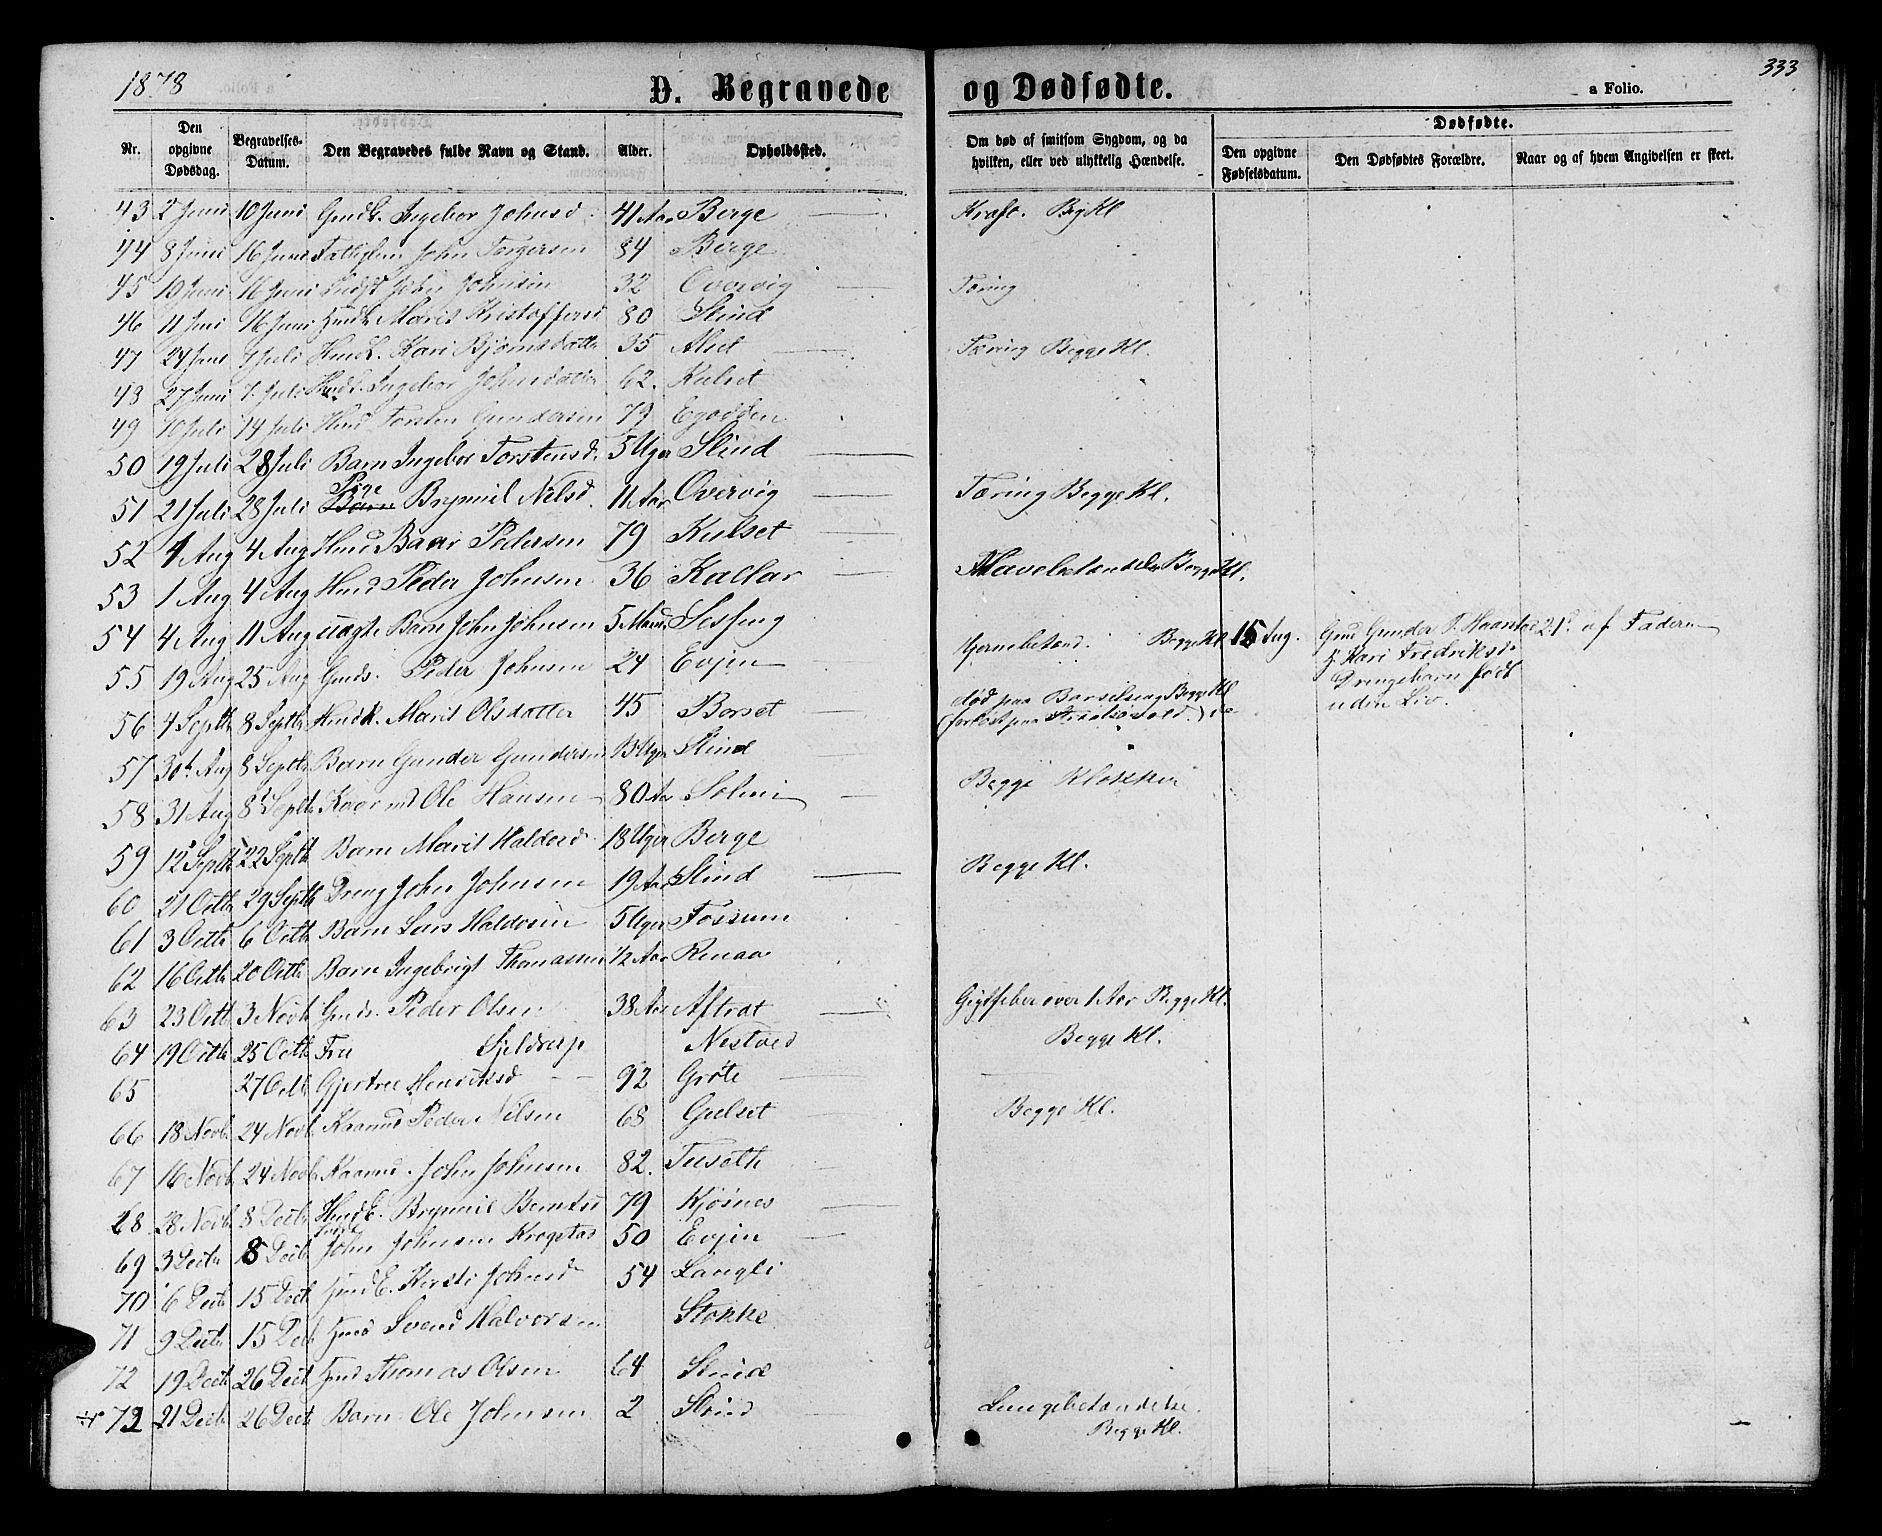 1878 D. Begravede og Dødfødte. a Folio. 333
Nr. Den opgivne Dødsdag. Begravelses-Datum. Den Begravedes fulde Navn og Stand. Alder. Opholdssted. Om død af smitsom Sygdom, og da hvilken, eller ved ulykkelig Hændelse. Dødfødte. Den opgivne Fødselsdatum. Den Dødfødtes Forældre. Naar og af hvem Angivelsen er skeet.
43 2 Juni 10 Juni Gmdk. Ingebor Johnsd. 41 Aar Berge Kræft. Beg Kl
44 8 Juni 16 Juni John Torgersen 84 Berge
45 10 Juni 16 Juni John Johnsen 32 Overvig Tæring
46 11 Juni 16 Juni Marit Kristoffersd 80 Slind
47 24 Juni 7 Juli Kari Bjørnsdatter 35 Alset Tæring Begge Kl.
48 27 Juni 7 Juli Ingebor Johnsdatter 62. Kulset
49 10 Juli 14 Juli Hmd Torsten Gundersen 79 Egodden
50 19 Juli 28 Juli Barn Ingebor Torstensd. 5 Uger Slind
51 21 Juli 28 Juli Pige Brynnil Nilsd. 11 Aar Overvig Tæring Begge Kl.
52 1 Aug 4 Aug Hmd Baar Pedersen 79 Kulset
53 1 Aug 4 Aug Hmd Peder Johnsen 36 Kallar Begge Kl.
54 4 Aug 11 Aug uægte Barn John Johnsen 5 Maan Sesseng
55 19 Aug 25 Aug Gmds. Peder Johnsen 24 Evjen Hjernebetænd. Begge Kl. 15 Aug. Gmd Gunder P. 21. af Faderen
Kari Fredriksd.
Drengebarn født
uden Liv.
56 4 Septb 8 Septb Marit Olsdatter 45 Borset død paa Barselseng Begge Kl
57 30 Aug 8 Septb Barn Gunder Gundersen 13 Uger Slind
58 31 Aug 8 Septb Ole Hansen 80 Aar Solem Begge Klokker
59 12 Septb 22 Septb Barn Marit Haldosd. 18 Uger Berge
60 21 Octb 29 Septb Dreng John Johnsen 19 Aar Slind Begge Kl.
61 3 Octb 6 Octb Barn Lars Haldosen 5 Uger Fossum
62 16 Octb 20 Octb Barn Ingebrigt Thomassen 1/2 Aar Renaa
63 23 Octb 3 Novb Gmds. Peder Olsen 38 Aar Aftret Gigtfeber over 1 Aar Begge Kl.
64 19 Octb 25 Octb Fru Sjeldrup Nestved Begge Kl.
65 27 Octb Gjertru Henriksd 92 Grøte
66 18 Novb 24 Novb Peder Nilsen 68 Gulset Begge Kl.
67 16 Novb 24 Novb John Johnsen 82. Tuseth
68 28 Novb 8 Decb Brynnil Berntsd 79 Kjøsnes
69 3 Decb 8 Decb John Johnsen Krogstad 50 Evjen
70 6 Decb 15 Decb Kirsti Johnsd 54 Langli
71 9 Decb 15 Decb Svend Halvorsen Stokke
72 19 Decb 26 Decb Thomas Olsen 64 Slind
72 21 Decb 26 Decb Barn Ole Johnsen 2 Slind Lungebetændelse.
Begge Kl.